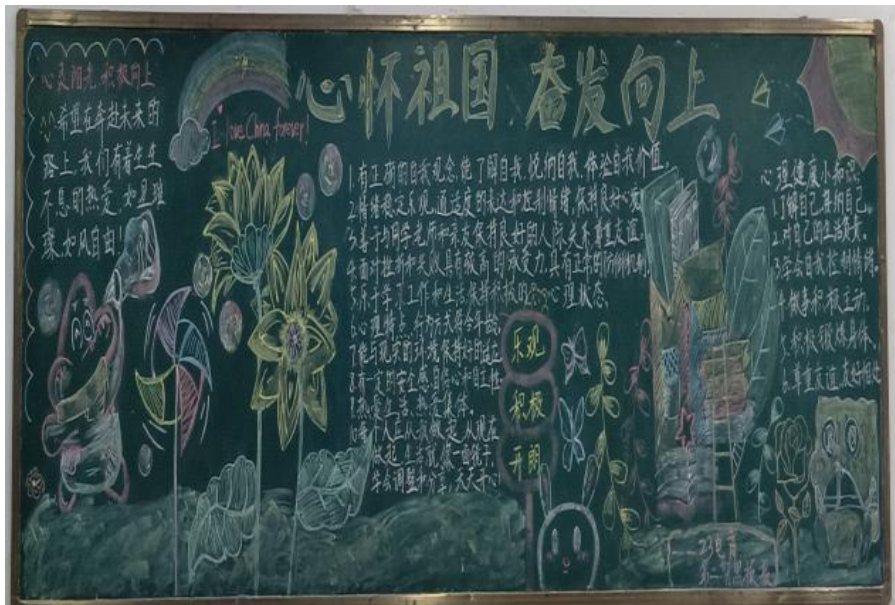 心怀祖国 奋发向上
心灵阳光 积极向上
希望在奔赴未来的
路上,我们有着生生
不息的热爱,如星璀
璨,如风自由!
I love China forever!
1.有正确的自我观念,能了解自我,悦纳自我,体验自我价值。
2.情绪稳定乐观,适度的表达和控制情绪,保持良好心态。
3.善于与同学、老师和亲友保持良好的人际关系,尊重友谊。
4.面对挫折和失败具有较高的承受力,具有正常的防御机制。
5.乐于学习、工作和生活保持积极的心理状态。
6.心理特点、行为方式符合年龄。
7.能与现实的环境保持好的适应
8.有一定的安全感、自信心和自主性
9.热爱生活、热爱集体。
每个人应从我做起,从现在
做起
学会调整和分享,天天开心
乐观
积极
开朗
心理健康小知识
1.了解自己,接纳自己。
2.对自己的生活负责。
3.学会自我控制情绪。
4.做事积极主动。
5.积极锻炼身体。
6.尊重友谊,友好相处